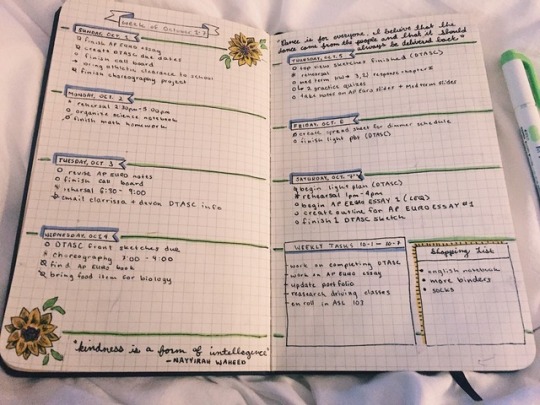 Week of October 2-7
SUNDAY, OCT. 1
finish AP EURO essay
create DTASC due dates
finish call board
bring athletic clearance to school
finish choreography project
MONDAY, OCT. 2
rehearsal 2:30pm-5:00pm
organize science notebook
finish math homework
TUESDAY, OCT. 3
revise AP EURO notes
finish call board
rehersal 6:30 - 9:00
email clarrissa + davon DTASC info
WEDNESDAY, OCT. 4
DTASC front sketches due
choreography 7:00 - 9:00
find AP EURO book
bring food item for biology
"kindness is a form of intellegence"
-NAYYIRAH WAHEED
"Dance is for everyone, I believe that the
dance came from the people and that it should
always be delivered back"
THURSDAY, OCT. 5
rehearsal
2 practice quizes
take notes on AP Euro slides + Med term slides
FRIDAY, OCT. 6
create spread sheet for dimmer schedule
finish light plot (DTASC)
SATURDAY, OCT. 7
begin light plan (DTASC)
rehearsal 1pm-4pm
begin AP EURO ESSAY 1 (LEQ)
create outline for AP EURO ESSAY #1
finish 1 DTASC sketch
WEEKLY TASKS 10-1 - 10-7
- work on completing DTASC
- work on AP Euro essay
- update portfolio
- research driving classes
- enroll in ASL 103
Shopping List
english notebook
more binders
socks